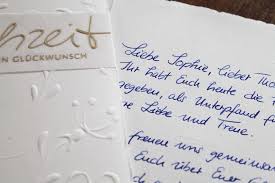 hzeit
N GLÜCKWUNSCH
Liebe Sophie, lieber Tho
Ihr habt Euch heute die T
egeben, als Unterpfand f
e Liebe und Treue.
freuen uns gemeinsam
Euch über Euer